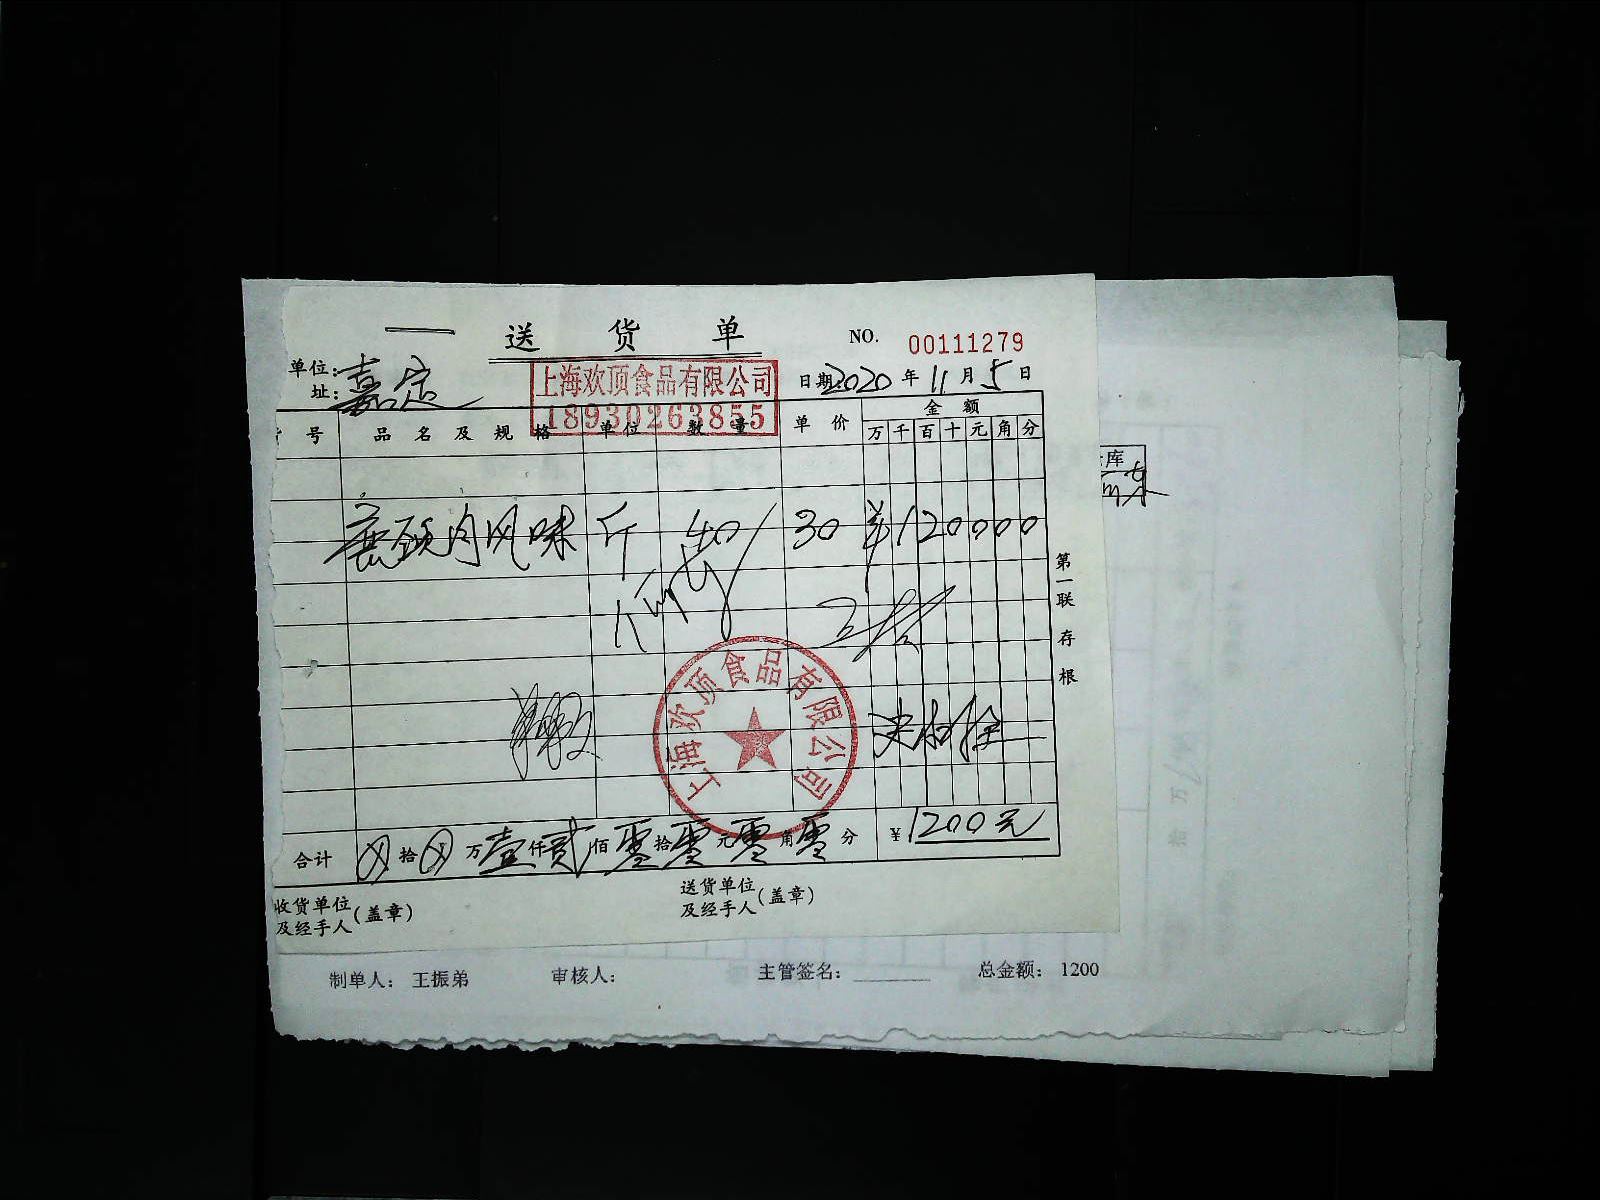 送货单
NO. 00111279
单位:
址: 嘉定
上海欢顶食品有限公司
18930263855
日期 2020 年 11 月 5 日
号 品名及规格 单位 数量 单价 金额
万 千 百 十 元 角 分
鹿颈肉风味 斤 40 30 ¥120000
第一联 存根
上海欢顶食品有限公司
合计 拾 万 壹 仟 贰 佰 零 拾 零 元 零 角 零 分 ¥ 1200元
收货单位
及经手人 (盖章)
送货单位
及经手人 (盖章)
库
制单人: 王振弟 审核人: 主管签名: 总金额: 1200